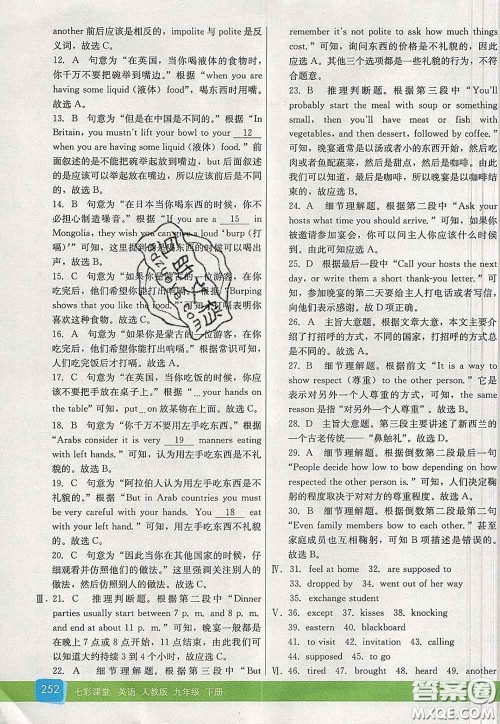 another 前后应该是相反的，impolite 与 polite 是反
义词，故选 C。
12. A 句意为“在英国，当你喝液体的食物时，
你千万不要把碗举到嘴边。”根据“when you are
having some liquid（液体）food”，喝东西时用嘴。
故选 A。
13. B 句意为“但是在中国是不同的。”根据“In
Britain, you mustn't lift your bowl to your 12
when you are having some liquid（液体）food.”前
面叙述的是不能把碗举起放到嘴边，but 后面叙述
的是应该可以把碗举起放到嘴边，前后是相反的。
故选 B。
14. B 句意为“在日本当你喝东西的时候，你不
必担心制造噪音。”根据“If you are a 15 in
Mongolia, they wish you can give a loud ‘burp（打
嗝）’”可知，
声。故选 B。
15. C 句意为“如果你是蒙古的一位游客，在你
吃完后，他们希望你能打嗝。”根据“Burping
shows that you like the food.”可知，打嗝表明你
喜欢这种食物。故选 C。
16. A 句意为“如果你是蒙古的一位游客，在你
吃完后，他们希望你能打嗝。”根据常识可知，人
们吃完饭后才打嗝。故选 A。
17. A 句意为“在英国，当你吃饭的时候，你应
该不要把手放在桌子上。”根据“...your hands on
the table”可知，put ...on 放某物在上面。故选 A。
18. A 句意为“你千万不要用左手吃东西。”根
据“Arabs consider it very 19 manners eating
with left hand.”可知，认为用左手吃东西不好。
故选 A。
19. A 句意为“阿拉伯人认为用左手吃东西是不
礼貌的。”根据“But in Arab countries you must
be very careful with your hands. You 18 eat
with your left hand.”可知，用左手吃东西不礼貌。
故选 C。
20. C 句意为“因此当你在其他国家的时候，仔
细观看并仿照他们的做法。”应该先注意到别人的
做法，然后仿照别人的做法。故选 C。
Ⅲ. 21. C 推理判断题。根据第二段中“Dinner
parties usually start between 7 p. m. and 8 p. m.
and end at about 11 p. m.”可知，晚宴一般都是
在晚上 7 点或 8 点开始，11 点结束，由此可知应
该是大约持续 3 小时到 4 小时。故选 C。
22. A 细节理解题。根据第三段中“But
remember it's not polite to ask how much things
cost.”可知，询问东西的价格是不礼貌的，因此应
选 A。其他三个选项都是一些礼貌的行为，不符
合题意。
23. B 推理判断题。根据第三段中“You'll
probably start the meal with soup or something
small, then you'll have meat or fish with
vegetables, and then dessert, followed by coffee.”可
知，晚宴通常是以汤或者小东西开始，然后吃
肉或者鱼配蔬菜，然后是甜点，然后是咖啡。由此
我们可以知道，最后是咖啡，所以晚宴以咖啡结
束。故选 B。
24. A 细节理解题。根据第二段中“Ask your
hosts what time you should arrive.”可知，如果你
被邀请参加宴会，你可以问主人你应该什么时候
到。由此可知应选 A。
25. D 根据最后一段中“Call your hosts the next
day, or write them a short thank-you letter.”可
知，参加晚宴的第二天要给主人打电话或者写信，
向他们表示感谢。故 D 项正确。
26. A 主旨大意题。根据文章大意，本文主要讲
了在不同的国家，打招呼的方式不同。打招呼的方
式是一种身体语言。故选 A。
27. B 细节理解题。根据前文“It is a way to
show respect（尊重）to the other person.”可知，
这里指“对另外一个人尊重”。故选 B。
28. D 主旨大意题。第三段主要讲了新西兰的
一个古老传统——“鼻触礼”。故选 D。
29. A 细节理解题。根据倒数第二段最后一句
“People decide how low to bow depending on how
respected the other person is.”可知，人们决定
鞠躬的程度取决于对对方的尊重程度。故选 A。
30. B 细节理解题。根据倒数第二段第二句
“Even family members bow to each other.”可知，甚至
家庭成员也互相鞠躬，可知鞠躬是很重要的。
故选 B。
Ⅳ. 31. feel at home 32. are supposed to
33. dropping by 34. went out of her way
35. exchange student
Ⅴ. 36. except 37. kisses 38. knocking
39. eastern 40. blackboard
Ⅵ. 41. to visit 42. invitation 43. calling
44. behaved 45. supposed
Ⅶ. 46. tired 47. brought 48. heard 49. another
252 七彩课堂 英语 人教版 九年级 下册
答案圈
MXQE.COM